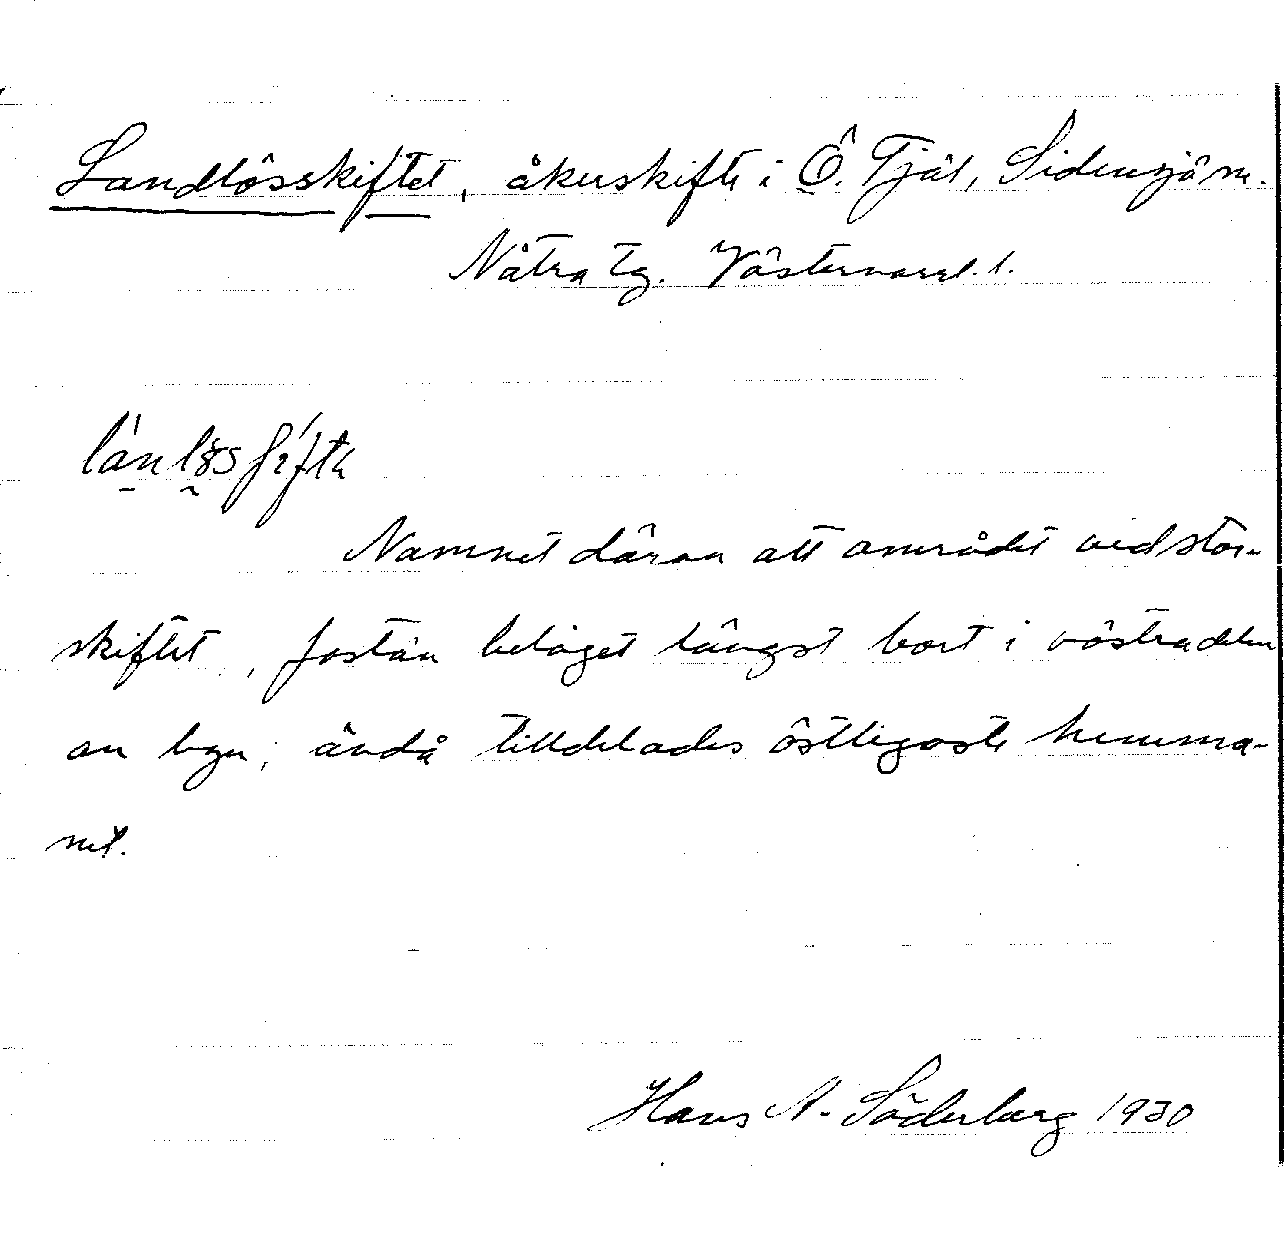 Landlösskiftet, åkerskifte i Ö. Tjäl, Sidensjö sn.
Nätra tg. Västernorrl. l.
Namnet därav att området vid stor-
skiftet, fastän beläget längst bort i västra delen
av byn, ändå tilldelades östligaste hemma-
net.
Hans A. Söderberg 1930